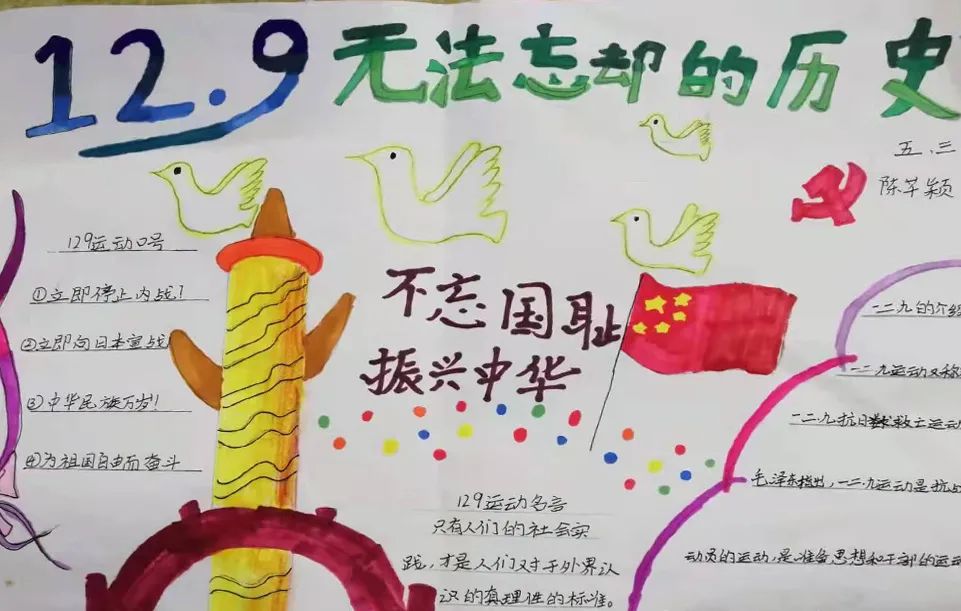 12.9 无法忘却的历史
五.三
陈芊颖
129运动口号
①立即停止内战!
②立即向日本宣战
③中华民族万岁!
④为祖国自由而奋斗
不忘国耻
振兴中华
129运动名言
只有人们的社会实
践,才是人们对于外界认
识的真理性的标准。
一二九的介绍
一二九运动又称
一二.九抗日救亡运动
毛泽东指出,一二.九运动是抗战
动员的运动,是准备思想和干部的运动